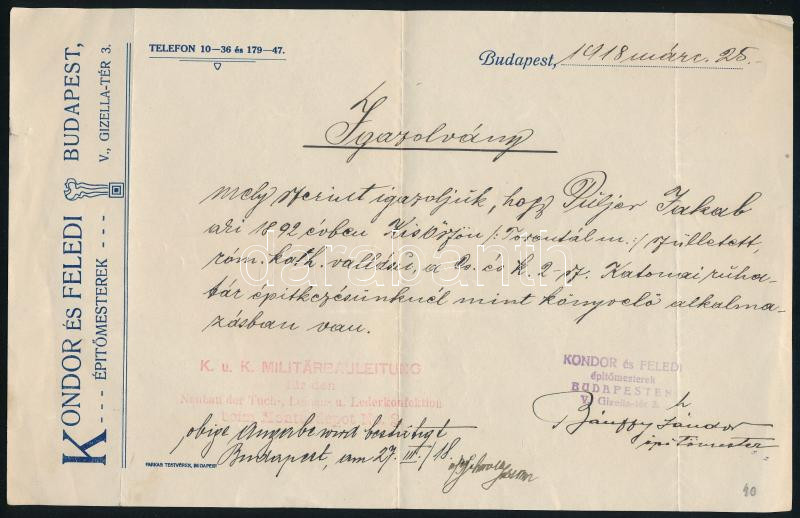 KONDOR ÉS FELEDI BUDAPEST,
--- ÉPITŐMESTEREK --- V., GIZELLA-TÉR 3.
TELEFON 10—36 és 179—47.
Budapest, 1918 márc. 25.-
Igazolvány
mely szerint igazoljuk, hogy Püljer Jakab
aki 1892 évben Kisőszön /: Torontál m :/ szülletett,
róm. kath. vallású, a cs. és k. 2-sz. Katonai ruha-
tár épitkezésünknél mint könyvelő alkalma-
zásban van.
darabanth
K. u. K. MILITÄRBAULEITUNG
für den
Neubau der Tuch-, Leinen- u. Lederkonfektion
beim Monturdepot No. 2
KONDOR és FELEDI
épitőmesterek
BUDAPESTEN
V., Gizella-tér 3.
Bánffy Sándor
épitőmester
obige Angabe wird bestätigt
Budapest, am 27. III. /18.
FARKAS TESTVÉREK, BUDAPEST